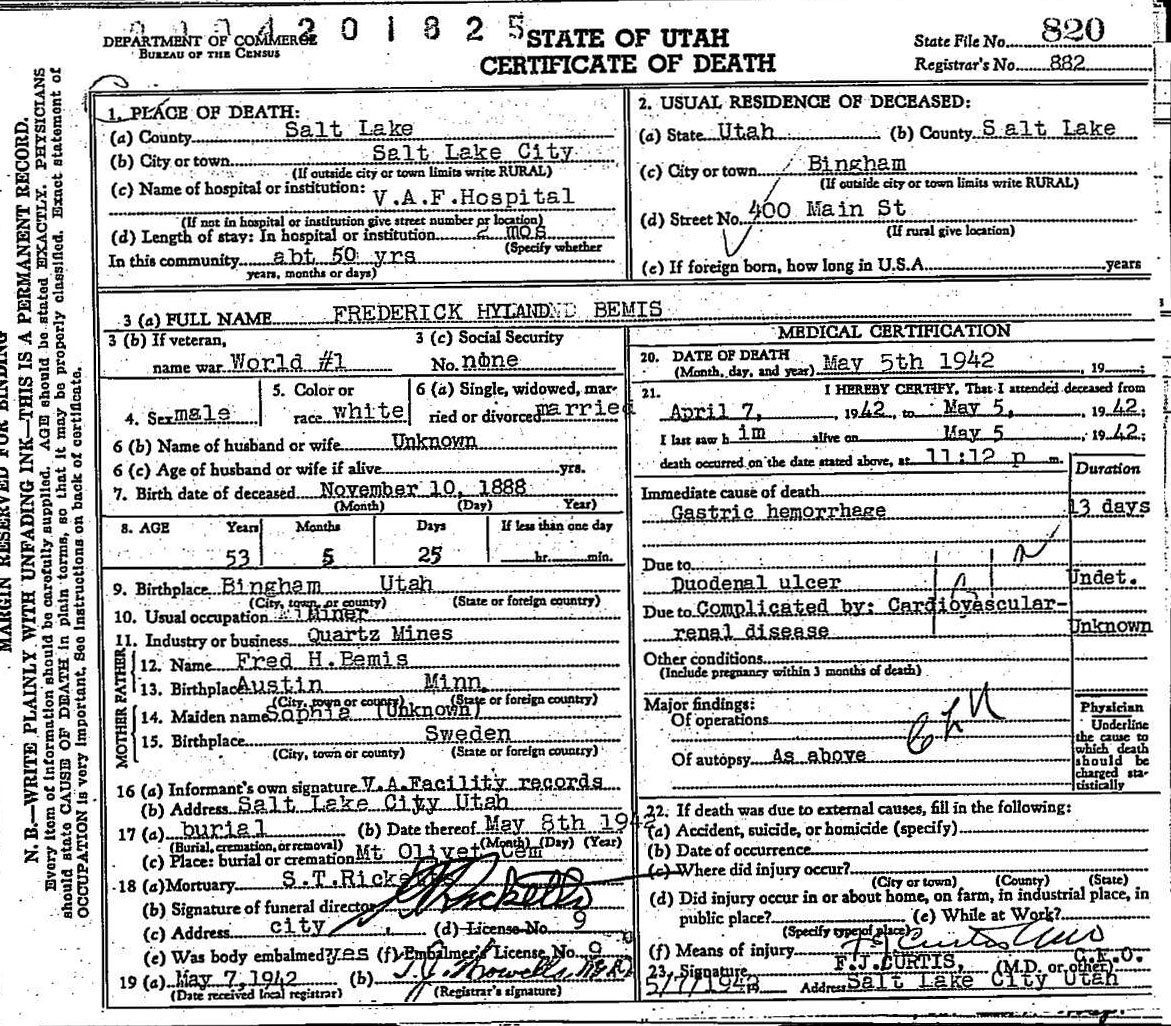 0104201825
DEPARTMENT OF COMMERCE
BUREAU OF THE CENSUS
STATE OF UTAH
CERTIFICATE OF DEATH
State File No. 820
Registrar's No. 882
MARGIN RESERVED FOR BINDING
N. B.—WRITE PLAINLY WITH UNFADING INK—THIS IS A PERMANENT RECORD.
Every item of information should be carefully supplied. AGE should be stated EXACTLY. PHYSICIANS
should state CAUSE OF DEATH in plain terms, so that it may be properly classified. Exact statement of
OCCUPATION is very important. See instructions on back of certificate.
1. PLACE OF DEATH:
(a) County Salt Lake
(b) City or town Salt Lake City
(If outside city or town limits write RURAL)
(c) Name of hospital or institution: V.A.F.Hospital
(If not in hospital or institution give street number or location)
(d) Length of stay: In hospital or institution 2 mos
(Specify whether
In this community abt 50 yrs
years, months or days)
2. USUAL RESIDENCE OF DECEASED:
(a) State Utah (b) County Salt Lake
(c) City or town Bingham
(If outside city or town limits write RURAL)
(d) Street No. 400 Main St
(If rural give location)
(e) If foreign born, how long in U.S.A. years
3 (a) FULL NAME FREDERICK HYLANDND BEMIS
3 (b) If veteran,
name war World #1
3 (c) Social Security
No. none
4. Sex male
5. Color or
race white
6 (a) Single, widowed, mar-
ried or divorced married
6 (b) Name of husband or wife Unknown
6 (c) Age of husband or wife if alive yrs.
7. Birth date of deceased November 10, 1888
(Month) (Day) Year)
8. AGE Years Months Days If less than one day
53 5 25 hr. min.
9. Birthplace Bingham Utah
(City, town, or county) (State or foreign country)
10. Usual occupation Miner
11. Industry or business Quartz Mines
FATHER
12. Name Fred H.Bemis
13. Birthplace Austin Minn.
(City, town or county) (State or foreign country)
MOTHER
14. Maiden name Sophia (Unknown)
15. Birthplace Sweden
(City, town or county) (State or foreign country)
16 (a) Informant's own signature V.A.Facility records
(b) Address Salt Lake City Utah
17 (a) burial (b) Date thereof May 8th 1942
(Burial, cremation, or removal) (Month) (Day) (Year)
(c) Place: burial or cremation Mt Olivet Cem
18 (a) Mortuary S.T.Ricketts
(b) Signature of funeral director Ricketts
(c) Address city, (d) License No. 9
(e) Was body embalmed? yes (f) Embalmer's License No. 9
19 (a) May 7, 1942 (b)
(Date received local registrar) (Registrar's signature)
MEDICAL CERTIFICATION
20. DATE OF DEATH May 5th 1942, 19
(Month, day, and year)
21. I HEREBY CERTIFY, That I attended deceased from
April 7, 1942, to May 5, 1942;
I last saw h im alive on May 5, 1942;
death occurred on the date stated above, at 11:12 p m.
Duration
Immediate cause of death
Gastric hemorrhage 13 days
Due to
Duodenal ulcer Undet.
Due to Complicated by: Cardiovascular-
renal disease Unknown
Other conditions
(Include pregnancy within 3 months of death)
Major findings:
Of operations
Of autopsy As above
Physician
Underline
the cause to
which death
should be
charged sta-
tistically
22. If death was due to external causes, fill in the following:
(a) Accident, suicide, or homicide (specify)
(b) Date of occurrence
(c) Where did injury occur?
(City or town) (County) (State)
(d) Did injury occur in or about home, on farm, in industrial place, in
public place? (e) While at Work?
(Specify type of place)
(f) Means of injury
23. Signature F.J.CURTIS, (M.D. or other) C.M.O.
5/7/1942 Address Salt Lake City Utah